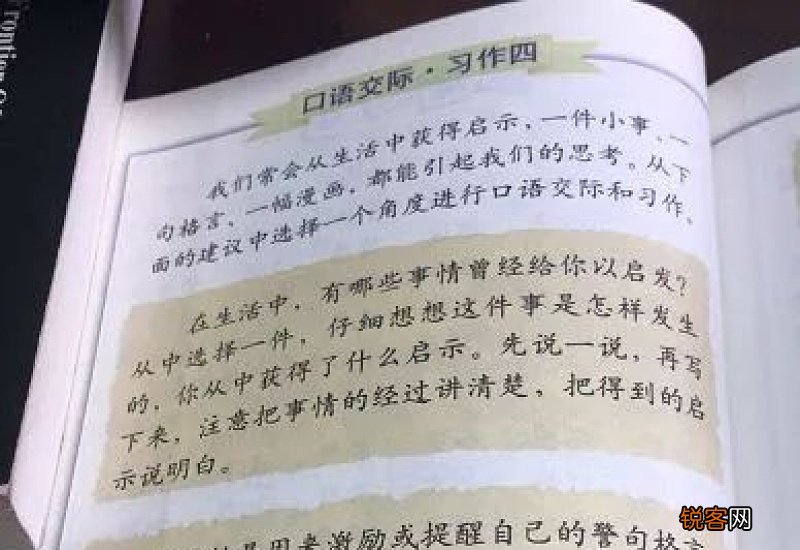 Frontier
口语交际·习作四
我们常会从生活中获得启示，一件小事、一
句格言、一幅漫画，都能引起我们的思考。从下
面的建议中选择一个角度进行口语交际和习作。
在生活中，有哪些事情曾经给你以启发？
从中选择一件，仔细想想这件事是怎样发生
的，你从中获得了什么启示。先说一说，再写
下来，注意把事情的经过讲清楚，把得到的启
示说明白。
是用来激励或提醒自己的警句格言
锐客网
www.ruik